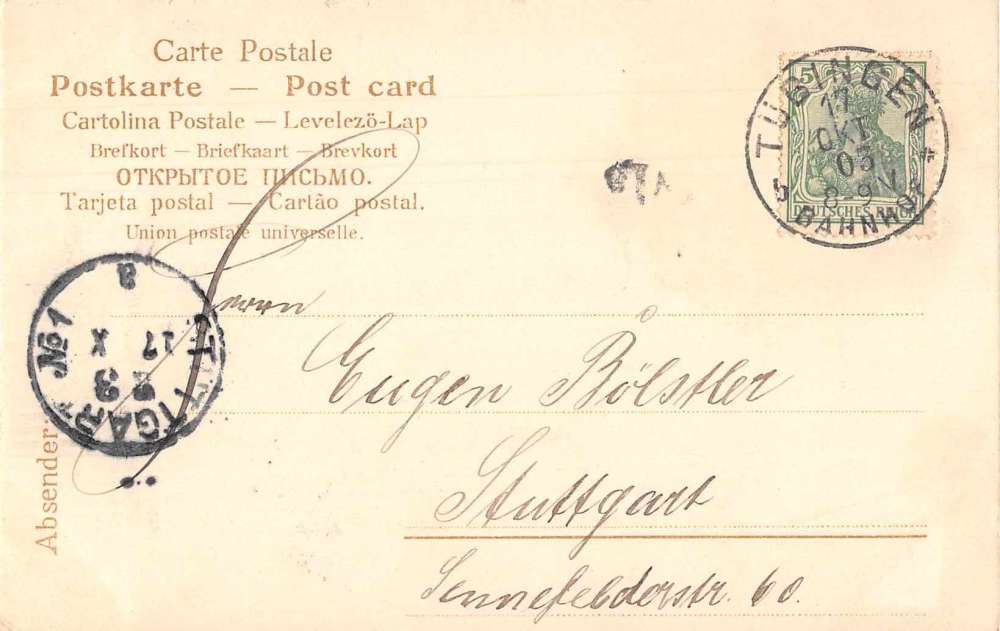 Carte Postale
Postkarte — Post card
Cartolina Postale — Levelező-Lap
Brefkort — Briefkaart — Brevkort
ОТКРЫТОЕ ПИСЬМО.
Tarjeta postal — Cartão postal.
Union postale universelle.
TÜBINGEN
17
OKT
03
8-9 N
b BAHNHOF
5
DEUTSCHES REICH
STUTTGART No 1
a
17 X
3
Absender:
Herrn
Eugen Bölstler
Stuttgart
Sennefelderstr. 60.